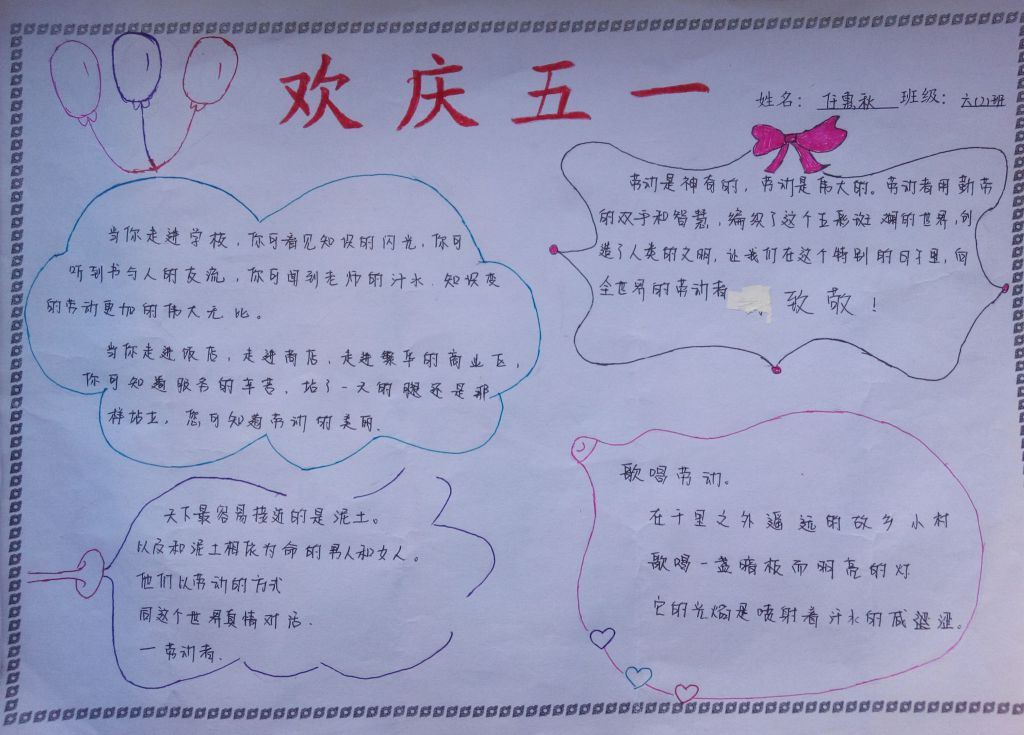 欢庆五一
姓名：任惠秋 班级：六(2)班
当你走进学校，你可看见知识的闪光，你可
听到书与人的友流，你可闻到老师的汗水．知识变
的劳动更加的伟大无比。
当你走进饭店，走进商店，走进繁华的商业区，
你可知道服务的辛苦，站了一天的腿还是那
样站立，您可知道劳动的美丽．
劳动是神奇的，劳动是伟大的。劳动者用勤劳
的双手和智慧，编织了这个五彩斑斓的世界，创
造了人类的文明，让我们在这个特别的日子里，向
全世界的劳动者 致敬！
天下最容易接近的是泥土。
以及和泥土相依为命的男人和女人。
他们以劳动的方式
同这个世界真情对话．
一劳动者．
歌唱劳动。
在千里之外遥远的故乡小村
歌唱一盏暗板而明亮的灯
它的光焰是喷射着汗水的咸涩涩。